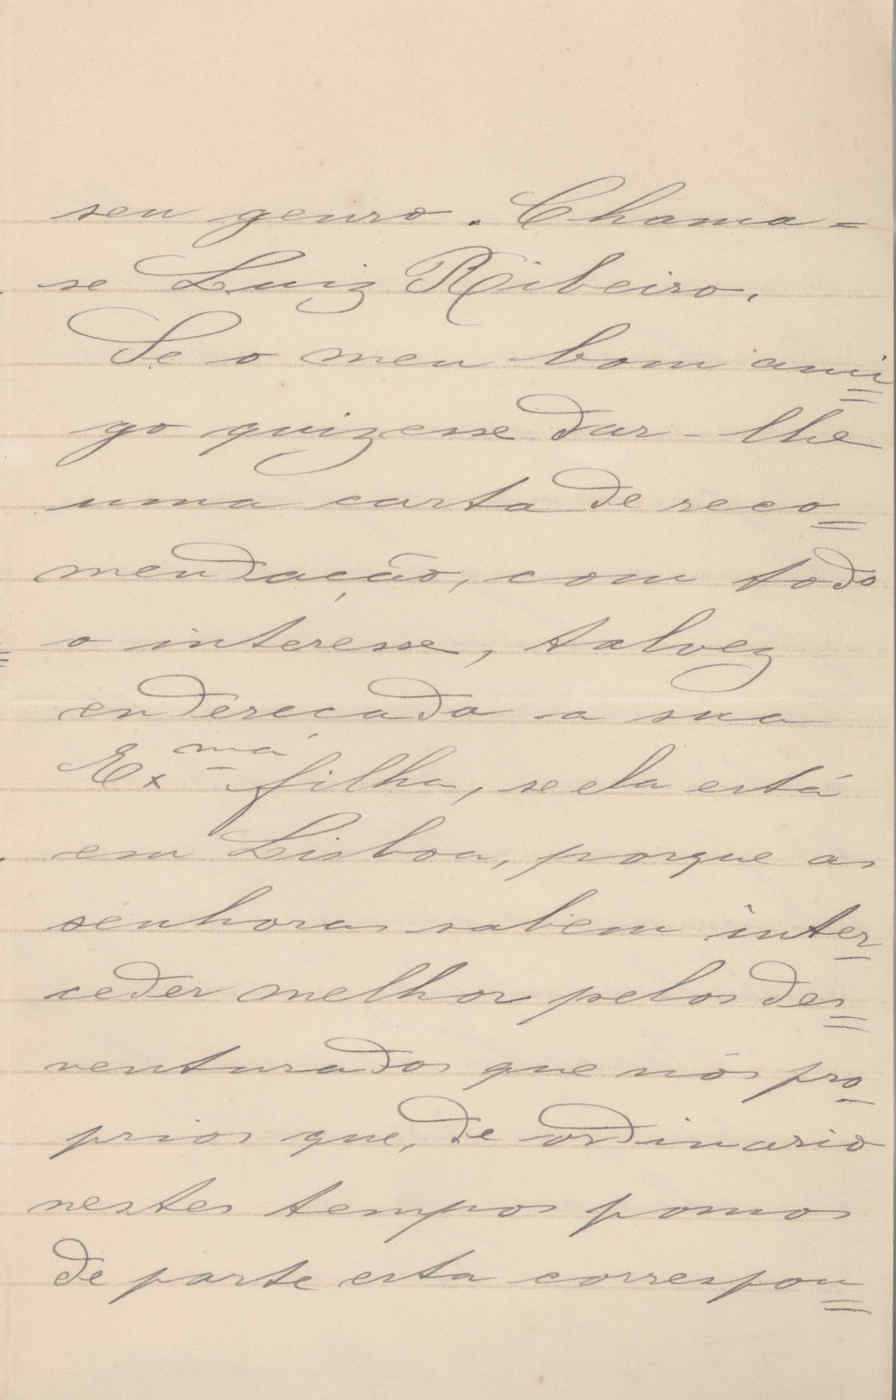 seu genro. Chama-
se Luiz Ribeiro.
Se o meu bom ami=
go quizesse dar-lhe
uma carta de reco=
mendação, com todo
o interesse, talvez
enderecada a sua
Exmá filha, se ela está
em Lisboa, porque as
senhoras sabem inter-
ceder melhor pelos des=
venturados que nós pro-
prios que, de ordinario
nestes tempos pomos
de parte esta correspon=